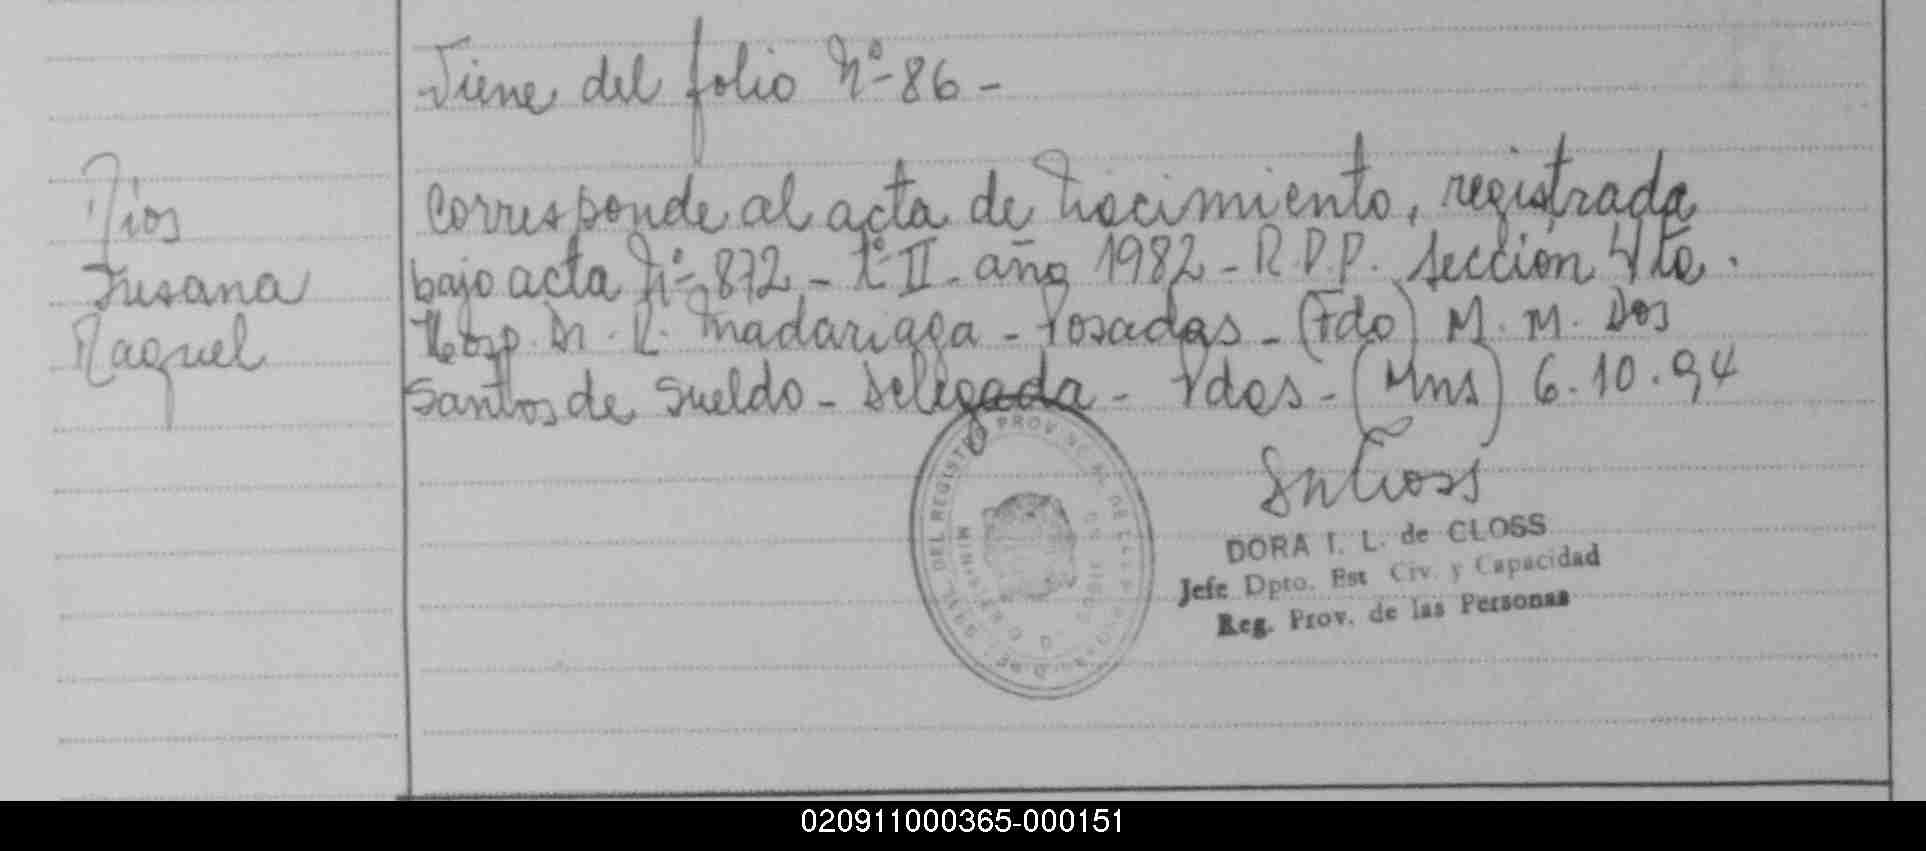 Viene del folio Nº 86 -
Rios
Susana
Raquel
Corresponde al acta de Nacimiento, registrada
bajo acta Nº 872 - tº II - año 1982 - R.P.P. Sección 4ta.
Hosp. Dr. R. Madariaga - Posadas - (Fdo) M. M. Dos
Santos de Sueldo - Delegada - Pdas - (Mns) 6.10.94
DORA I. L. de CLOSS
Jefe Dpto. Est Civ. y Capacidad
Reg. Prov. de las Personas
DEL REGISTRO PROVINCIAL DE
020911000365-000151